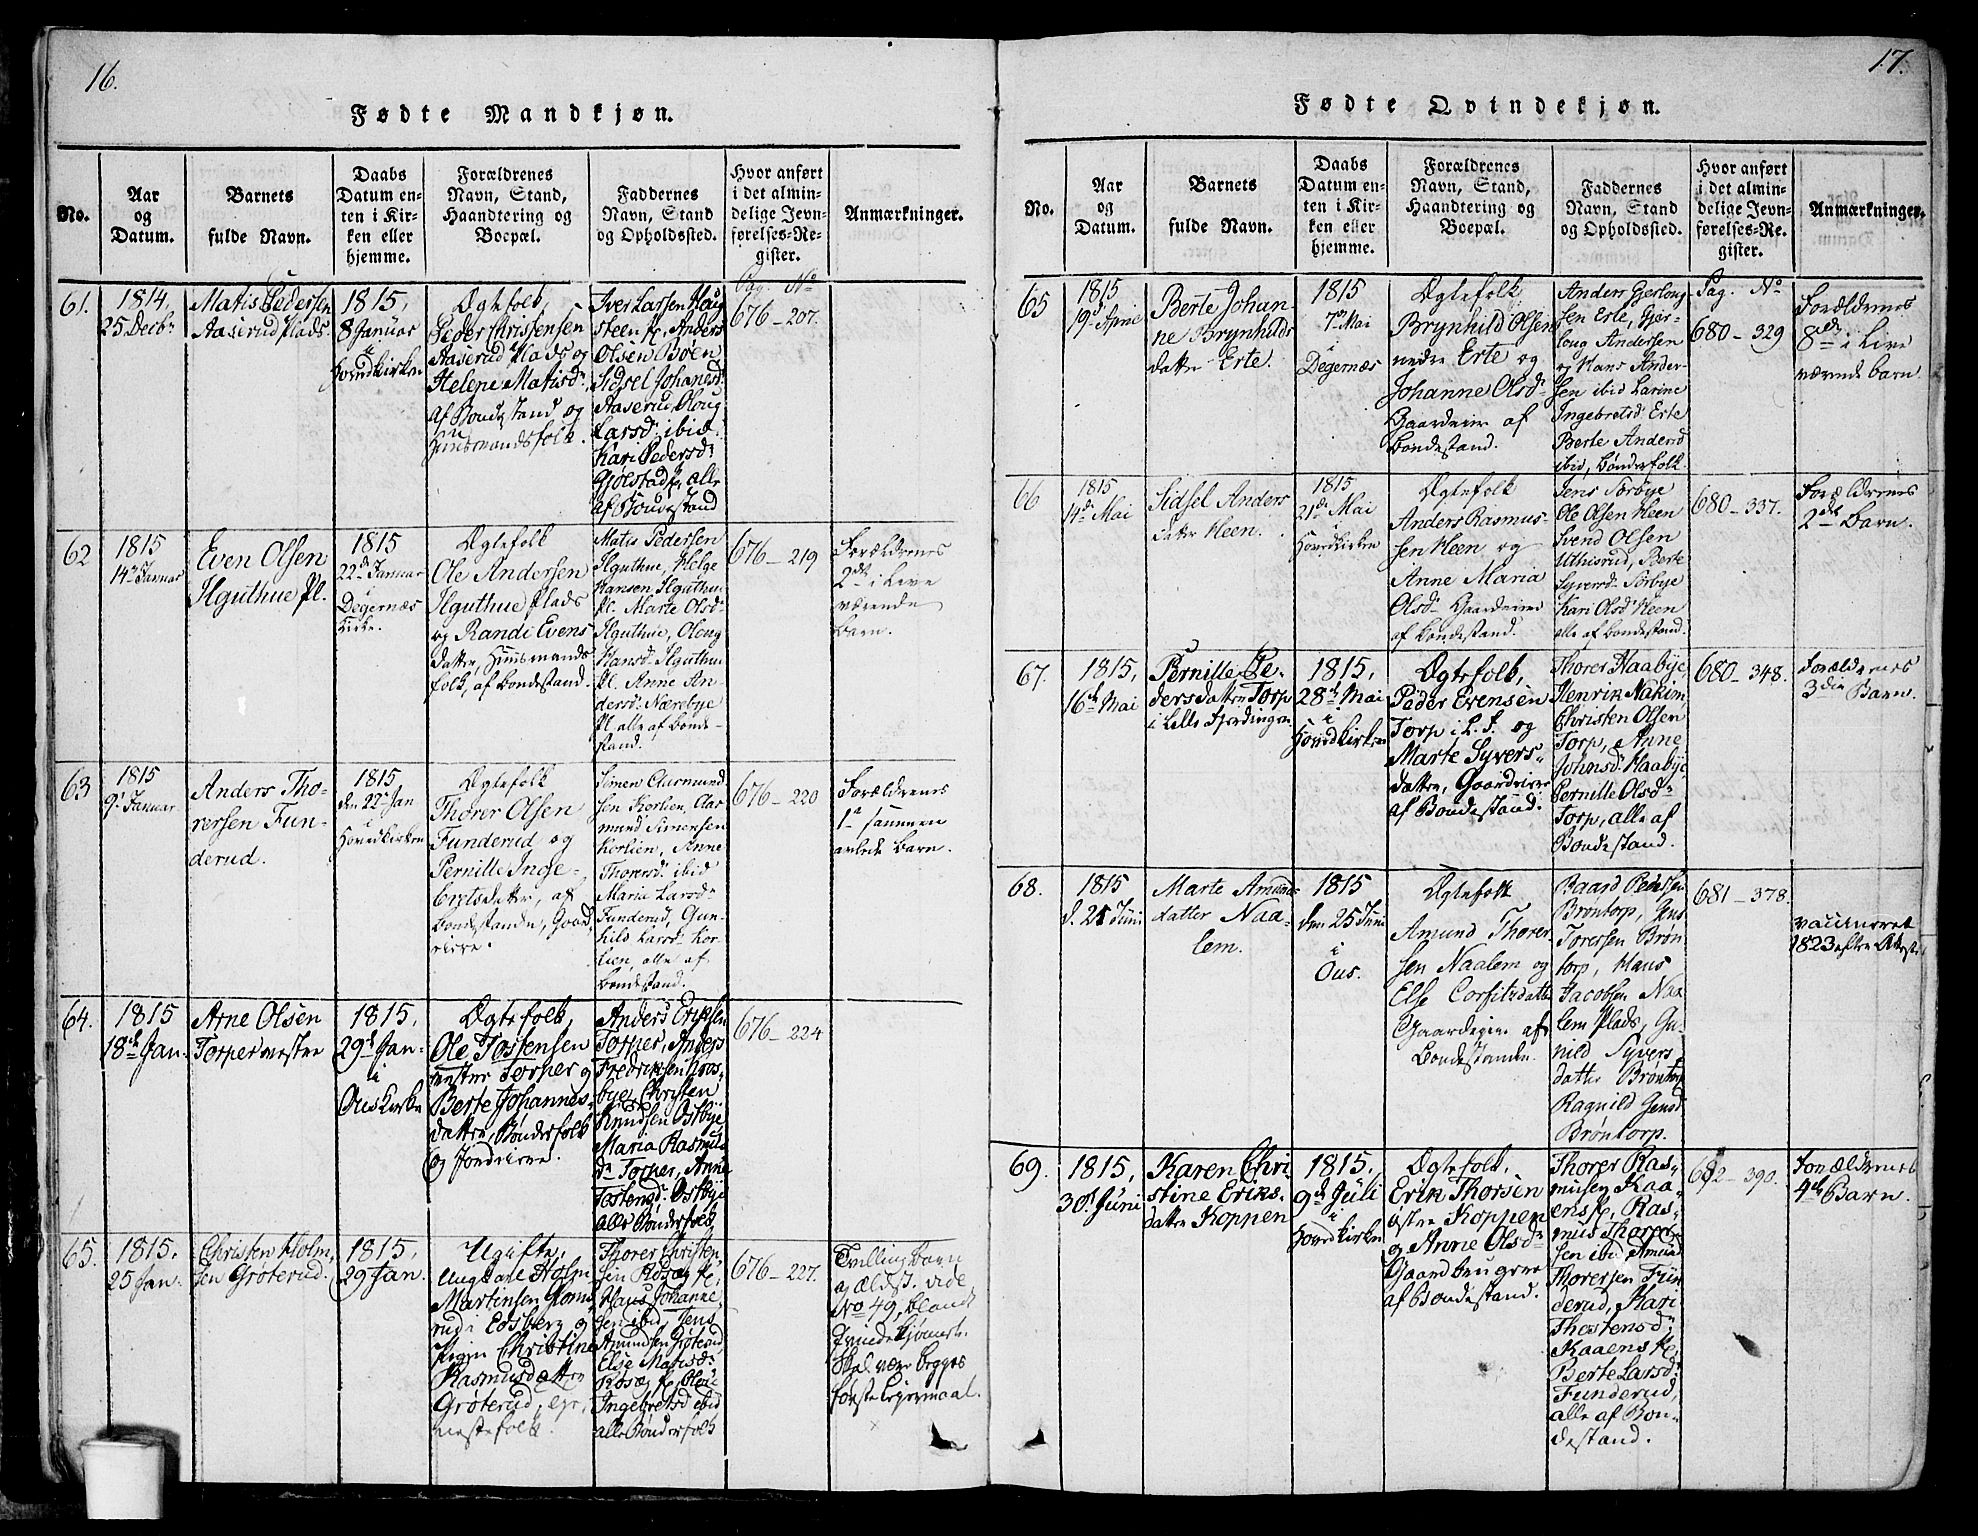 16.
Fødte Mandkjøn.
No.
Aar
og
Datum.
Barnets
fulde Navn.
Daabs
Datum en-
ten i Kir-
ken eller
hjemme.
Forældrenes
Navn, Stand,
Haandtering og
Boepæl.
Faddernes
Navn, Stand
og Opholdssted.
Hvor anført
i det almin-
delige Jevn-
førelses-Re-
gister.
Anmærkninger.
61.
1814,
25 Decbr
Matis Pedersen
Aaserud Plads.
1815,
8 Januar
i
Hovedkirken
Ægtefolk,
Peder Christensen
Aaserud Plads og
Helene Matisdr
af Bondestand og
Huusmandsfolk.
Iver Larsen Houg-
steen pl, Anders
Olsen Bøen
Sidsel Johanesdr
Aaserud, Oloug
Larsdr ibid:
Kari Pedersdr
Gjølstad pl, alle
af Bondestand
Pag. No
676-207.
62
1815
14 Januar
Even Olsen
Ilguthue Pl.
1815
22de Januar
i
Degernæs
Kirke.
Ægtefolk
Ole Andersen
Ilguthue Plads
og Randi Evens
datter, Huusmands
folk, af Bondestand.
Matis Pedersen
Ilguthue, Helge
Hansen Ilguthue
Pl. Marte Olsdr
Ilguthue, Oloug
Hansdr Ilguthue
Pl. Anne An-
dersdr Nærebye
Pl alle af Bonde-
stand.
676-219
Forældrenes
2det i Live
værende
Barn.
63
1815
9 Januar
Anders Tho-
rersen Fun-
derud.
1815
den 22 Jan
i
Hovedkirken
Ægtefolk
Thorer Olsen
Funderud og
Pernille Inge-
bretsdatter, af
Bondestanden, Gaard
Simen Aasmund
sen Korlien, Aas-
mund Simensen
Korlien, Anne
Thorersdr ibid
Maria Larsdr
Funderud, Gun-
hild Larsdr Kor-
lien, alle af
Bondestand.
676-220
Forældrenes
1te sammen
avlede Barn.
64.
1815
18de Jan.
Arne Olsen
Torper vestre
1815.
29de Jan-
i
Ous Kirke
Ægtefolk,
Ole Tostensen
vestre Torper og
Berte Johannes-
datter, Bønderfolk
Anders Eriksen
Torper, Anders
Fredriksen Roos-
bye, Christen
Knudsen Ostbye,
Maria Rasmus
dr Torper, Anne
Tostensdr Ostbye
alle Bønderfolk.
676-224
65.
1815.
25 Jan.
Christen Holm-
sen Grøterud.
1815.
29 Jan.
Ugifte,
Ungkarl Holm
Martensen
rud i Edsberg og
Pigen Christine
Rasmusdatter
Grøterud,
Thorer Christen-
sen Rosæg Pl,
Hans Johanne-
sen ibid, Jens
Amundsen Grøterud,
Else Matisdr
Rosæg Pl,
Ingebretsd ibid
alle Bønderfolk
676-227.
Tvilling barn
og ældst. vide
No 49, blandt
Qvindekjønnet.
Skal være begges
første Leiermaal.
17.
Fødte Qvindekjøn.
No.
Aar
og
Datum.
Barnets
fulde Navn.
Daabs
Datum en-
ten i Kir-
ken eller
hjemme.
Forældrenes
Navn, Stand,
Haandtering og
Boepæl.
Faddernes
Navn, Stand
og Opholdssted.
Hvor anført
i det almin-
delige Jevn-
førelses-Re-
gister.
Anmærkninger.
65
1815
19 Aprie
Berte Johan-
ne Brynhilds
datter Erte.
1815
7de Mai
i
Degernæs
Ægtefolk
Brynhild Olsen
nedre Erte og
Johanne Olsdr
Gaardeier af
Bondestand.
Anders Gjerloug
sen Erte, Gjer-
loug Andersen
og Hans Ander-
sen ibid Larine
Ingebretsd Erte
Berte Andersd
ibid, Bønderfolk.
Pag. No
680-329
Forældrenes
8de i Live
værende barn.
66
1815
14de Mai
Sidsel Anders
datter Heen.
1815
21de Mai
i
Hovedkirken
Ægtefolk
Anders Rasmus-
sen Heen og
Anne Maria
Olsdr Gaardeiere
af Bondestand.
Jens Sorbye
Ole Olsen Heen
Svend Olsen
Uthisrud, Berte
Syversdr Sorbye
Kari Olsd Heen
alle af Bondestand.
680-337.
Forældrenes
2det Barn.
67.
1815,
16de Mai
Pernille Pe-
dersdatter Torp
i Lille Fjerdingen.
1815,
28de Mai
i
Hovedkirken
Ægtefolk,
Peder Evensen
Torp i L. F. og
Marte Syvers-
datter, Gaardeiere
af Bondestand.
Thorer Haabye,
Henrik Nakim,
Christen Olsen
Torp, Anne
Johnsdr Haabye,
Pernille Olsdr
Torp, alle af
Bondestand.
680-348.
Forældrenes
3die Barn.
68.
1815
d. 21 Juni
Marte Amunds
datter Naa-
lem.
1815
den 25 Juni
i
Ous.
Ægtefolk
Amund Thorer
sen Naalem og
Else Corfitsdatter
Gaardeiere af
Bondestanden.
Baard Pedersen
Brøntorp, Jens
Torersen Brøn-
torp, Hans
Jacobsen Naa-
lem Plads, Gu-
nild Syvers
datter Brøntorp
Ragnild Jensd
Brøntorp.
681-378.
vaccineret
1823 efter Attest
69.
1815,
30 Juni
Karen Chri-
stine Eriks-
datter Koppen
1815.
9de Juli
i
Hovedkirken
Ægtefolk,
Erik Thorsen
østre Koppen
og Anne Olsdr
Gaardbrugere
af Bondestand.
Thorer Ras-
musen Kaa-
ens pl, Ras-
mus Thorer-
sen ibid Amund
Thorersen Fun
derud, Kari
Thostensdr
Kaaens Pl,
Berte Larsdr
Funderud,
alle af Bon-
destand.
682-390.
Forældrenes
4de Barn.